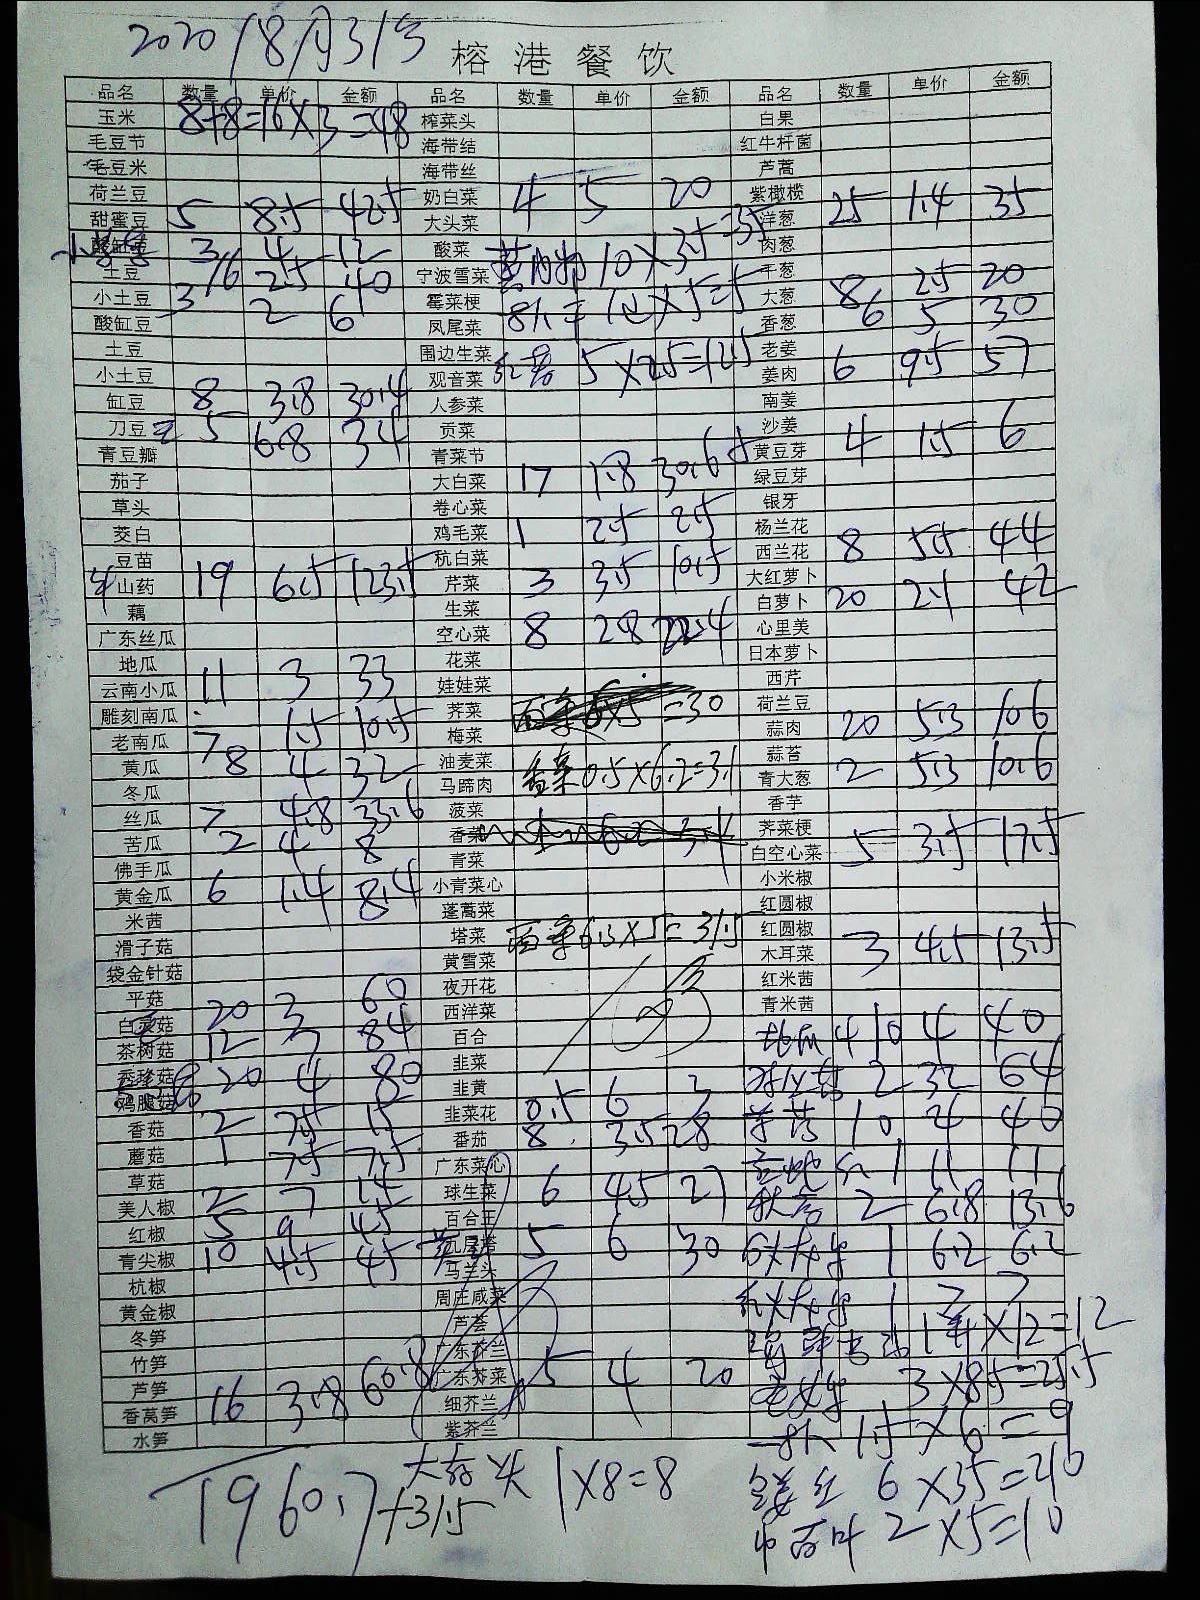 2020/8月31号
榕港餐饮
品名 数量 单价 金额 品名 数量 单价 金额 品名 数量 单价 金额
玉米 8+8=16×3=48 榨菜头 白果
毛豆节 海带结 红牛杆菌
毛豆米 海带丝 芦蒿
荷兰豆 奶白菜 4 5 20 紫橄榄 25 1.4 35
甜蜜豆 5 8.5 42.5 大头菜 洋葱
3 4 12 酸菜 10×3.5=35 肉葱
土豆 16 2.5 40 宁波雪菜 干葱
小土豆 3 2 6 霉菜梗 大葱 8 2.5 20
酸缸豆 凤尾菜 香葱 6 5 30
土豆 围边生菜 老姜
小土豆 观音菜 5×2.5=12.5 姜肉 6 9.5 57
缸豆 8 3.8 30.4 人参菜 南姜
刀豆 5 6.8 34 贡菜 沙姜
青豆瓣 青菜节 黄豆芽 4 1.5 6
茄子 大白菜 17 1.8 30.6 绿豆芽
草头 卷心菜 银牙
茭白 鸡毛菜 1 2.5 2.5 杨兰花
豆苗 杭白菜 西兰花 8 5.5 44
山药 19 6.5 123.5 芹菜 3 3.5 10.5 大红萝卜
藕 生菜 白萝卜 20 2.1 42
广东丝瓜 空心菜 8 2.8 22.4 心里美
地瓜 花菜 日本萝卜
云南小瓜 11 3 33 娃娃菜 西芹
雕刻南瓜 荠菜 荷兰豆
老南瓜 7 1.5 10.5 梅菜 蒜肉 20 5.3 106
黄瓜 8 4 32 油麦菜 香菜0.5×6.2=3.1 蒜苔
冬瓜 马蹄肉 青大葱 2 5.3 10.6
丝瓜 7 4.8 33.6 菠菜 香芋
苦瓜 2 4 8 香菜 荠菜梗
佛手瓜 青菜 白空心菜 5 3.5 17.5
黄金瓜 6 1.4 8.4 小青菜心 小米椒
米茜 蓬蒿菜 红圆椒
滑子菇 塔菜 西芹6.3×5=31.5 红圆椒
袋金针菇 黄雪菜 木耳菜 3 4.5 13.5
平菇 夜开花 红米茜
白灵菇 20 3 60 西洋菜 青米茜
茶树菇 12 7 84 百合 地瓜 4 10 4 40
秀珍菇 20 4 80 韭菜 2 32 64
鸡腿菇 韭黄
香菇 2 7.5 15 韭菜花 0.5 6 3 10 4 40
蘑菇 1 7.5 7.5 番茄 8 3.5 28
草菇 广东菜心 1 11 11
美人椒 2 7 14 球生菜 6 4.5 27 秋葵 2 6.8 13.6
红椒 5 9 45 百合王
青尖椒 10 4.5 45 九层塔 5 6 30 1 6.2 6.2
杭椒 马兰头
黄金椒 周庄咸菜 1 7 7
冬笋 芦荟 ×12=12
竹笋 广东芥兰
芦笋 广东芥菜 5 4 20 3×8.5=25.5
香莴笋 16 3.8 60.8 细芥兰
水笋 紫芥兰 1.5×6=9
1960.7+31.5 1×8=8 6×35=210
2×5=10